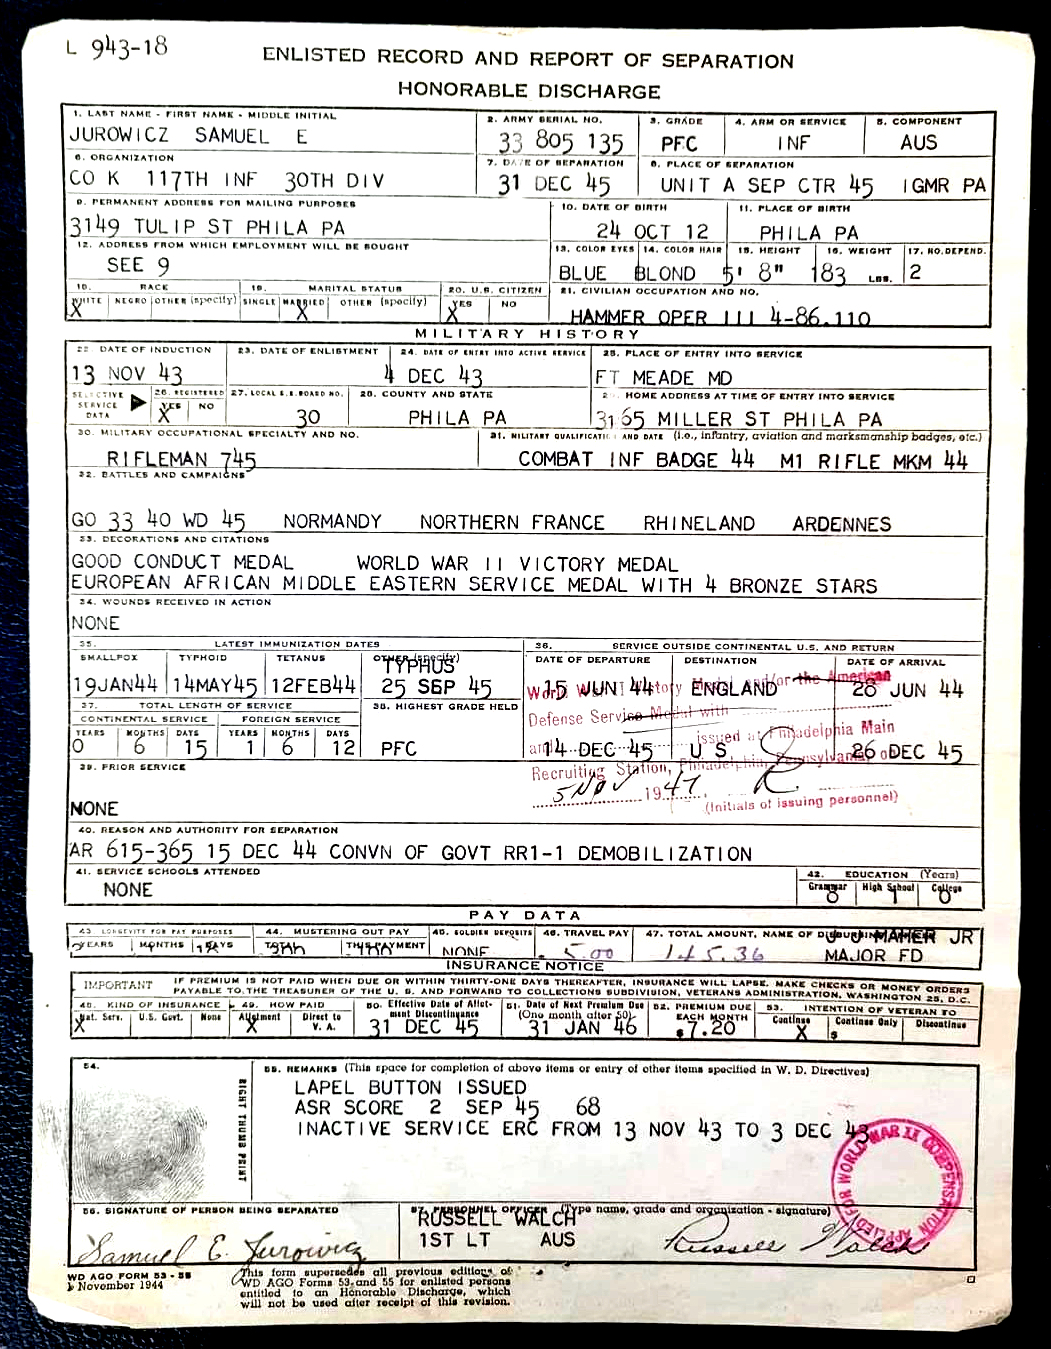 L 943-18
ENLISTED RECORD AND REPORT OF SEPARATION
HONORABLE DISCHARGE
1. LAST NAME - FIRST NAME - MIDDLE INITIAL
JUROWICZ SAMUEL E
2. ARMY SERIAL NO.
33 805 135
3. GRADE
PFC
4. ARM OR SERVICE
INF
5. COMPONENT
AUS
6. ORGANIZATION
CO K 117TH INF 30TH DIV
7. DATE OF SEPARATION
31 DEC 45
8. PLACE OF SEPARATION
UNIT A SEP CTR 45 IGMR PA
9. PERMANENT ADDRESS FOR MAILING PURPOSES
3149 TULIP ST PHILA PA
10. DATE OF BIRTH
24 OCT 12
11. PLACE OF BIRTH
PHILA PA
12. ADDRESS FROM WHICH EMPLOYMENT WILL BE SOUGHT
SEE 9
13. COLOR EYES
BLUE
14. COLOR HAIR
BLOND
15. HEIGHT
5' 8"
16. WEIGHT
183 LBS.
17. NO. DEPEND.
2
18. RACE
WHITE NEGRO OTHER (specify)
X
19. MARITAL STATUS
SINGLE MARRIED OTHER (specify)
X
20. U.S. CITIZEN
YES NO
X
21. CIVILIAN OCCUPATION AND NO.
HAMMER OPER III 4-86.110
MILITARY HISTORY
22. DATE OF INDUCTION
13 NOV 43
23. DATE OF ENLISTMENT
24. DATE OF ENTRY INTO ACTIVE SERVICE
4 DEC 43
25. PLACE OF ENTRY INTO SERVICE
FT MEADE MD
SELECTIVE SERVICE DATA
26. REGISTERED
YES NO
X
27. LOCAL S.S. BOARD NO.
30
28. COUNTY AND STATE
PHILA PA
29. HOME ADDRESS AT TIME OF ENTRY INTO SERVICE
3165 MILLER ST PHILA PA
30. MILITARY OCCUPATIONAL SPECIALTY AND NO.
RIFLEMAN 745
31. MILITARY QUALIFICATION AND DATE (i.e., infantry, aviation and marksmanship badges, etc.)
COMBAT INF BADGE 44 M1 RIFLE MKM 44
32. BATTLES AND CAMPAIGNS
GO 33 40 WD 45 NORMANDY NORTHERN FRANCE RHINELAND ARDENNES
33. DECORATIONS AND CITATIONS
GOOD CONDUCT MEDAL WORLD WAR II VICTORY MEDAL
EUROPEAN AFRICAN MIDDLE EASTERN SERVICE MEDAL WITH 4 BRONZE STARS
34. WOUNDS RECEIVED IN ACTION
NONE
35. LATEST IMMUNIZATION DATES
SMALLPOX TYPHOID TETANUS OTHER (specify)
TYPHUS
19JAN44 14MAY45 12FEB44 25 SEP 45
36. SERVICE OUTSIDE CONTINENTAL U.S. AND RETURN
DATE OF DEPARTURE DESTINATION DATE OF ARRIVAL
15 JUN 44 ENGLAND 28 JUN 44
14 DEC 45 U S 26 DEC 45
World War II Victory Medal and/or the American
Defense Service Medal with
and issued at Philadelphia Main
Recruiting Station, Philadelphia, Pennsylvania, on
5 Nov 1947
(Initials of issuing personnel)
37. TOTAL LENGTH OF SERVICE
CONTINENTAL SERVICE FOREIGN SERVICE
YEARS MONTHS DAYS YEARS MONTHS DAYS
0 6 15 1 6 12
38. HIGHEST GRADE HELD
PFC
39. PRIOR SERVICE
NONE
40. REASON AND AUTHORITY FOR SEPARATION
AR 615-365 15 DEC 44 CONVN OF GOVT RR1-1 DEMOBILIZATION
41. SERVICE SCHOOLS ATTENDED
NONE
42. EDUCATION (Years)
Grammar High School College
8 1 0
PAY DATA
43. LONGEVITY FOR PAY PURPOSES
YEARS MONTHS DAYS
44. MUSTERING OUT PAY
TOTAL THIS PAYMENT
45. SOLDIER DEPOSITS
NONE
46. TRAVEL PAY
5.00
47. TOTAL AMOUNT, NAME OF DISBURSING OFFICER
145.36
J J MAHER JR
MAJOR FD
INSURANCE NOTICE
IMPORTANT
IF PREMIUM IS NOT PAID WHEN DUE OR WITHIN THIRTY-ONE DAYS THEREAFTER, INSURANCE WILL LAPSE. MAKE CHECKS OR MONEY ORDERS
PAYABLE TO THE TREASURER OF THE U. S. AND FORWARD TO COLLECTIONS SUBDIVISION, VETERANS ADMINISTRATION, WASHINGTON 25, D.C.
48. KIND OF INSURANCE
Nat. Serv. U.S. Govt. None
X
49. HOW PAID
Allotment Direct to V. A.
X
50. Effective Date of Allotment Discontinuance
31 DEC 45
51. Date of Next Premium Due (One month after 50)
31 JAN 46
52. PREMIUM DUE EACH MONTH
$7.20
53. INTENTION OF VETERAN TO
Continue Continue Only Discontinue
X $
54.
RIGHT THUMB PRINT
55. REMARKS (This space for completion of above items or entry of other items specified in W. D. Directives)
LAPEL BUTTON ISSUED
ASR SCORE 2 SEP 45 68
INACTIVE SERVICE ERC FROM 13 NOV 43 TO 3 DEC 43
APPLIED FOR WORLD WAR II COMPENSATION
56. SIGNATURE OF PERSON BEING SEPARATED
Samuel E. Jurowicz
57. PERSONNEL OFFICER (Type name, grade and organization - signature)
RUSSELL WALCH
1ST LT AUS
Russell Walch
WD AGO FORM 53 - 55
1 November 1944
This form supersedes all previous editions of
WD AGO Forms 53 and 55 for enlisted persons
entitled to an Honorable Discharge, which
will not be used after receipt of this revision.